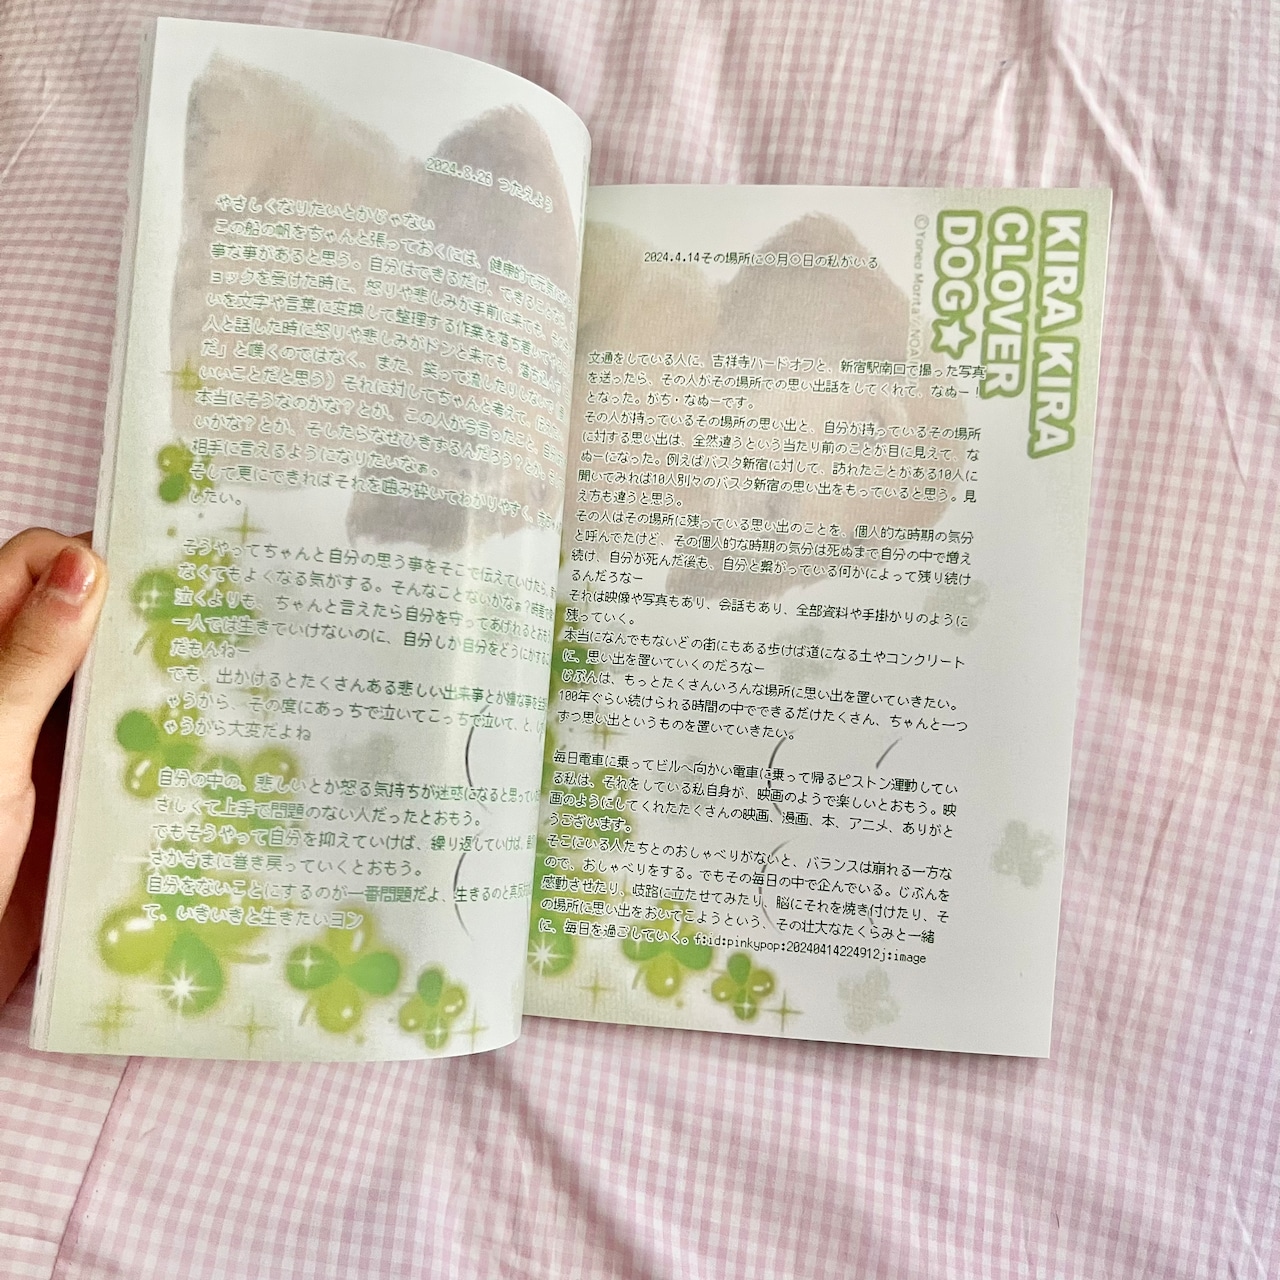 2024.8.26 つたえよう
やさしくなりたいとかじゃない
この船の帆をちゃんと張っておくには、健康的で元気
事な事があると思う。自分はできるだけ、できることなら
ョックを受けた時に、怒りや悲しみが手前に来ても、その
いを文字や言葉に変換して整理する作業を落ち着いて
人と話した時に怒りや悲しみがドンと来ても、落ち込
だ」と嘆くのではなく、また、笑って流したりしないで
いいことだと思う）それに対してちゃんと考えて、
本当にそうなのかな？とか、この人が今言ったこと、自分
いかな？とか、そしたらなぜひきずるんだろう？とか、
相手に言えるようになりたいなぁ。
そして更にできればそれを噛み砕いてわかりやすく、
したい。
そうやってちゃんと自分の思う事をそこで伝えていけたら、
なくてもよくなる気がする。そんなことないかなぁ？時差で
泣くよりも、ちゃんと言えたら自分を守ってあげれるとおも
一人では生きていけないのに、自分しか自分をどうにかする
だもんねー
でも、出かけるとたくさんある悲しい出来事とか嫌な事を
ゃうから、その度にあっちで泣いてこっちで泣いて、と、
ゃうから大変だよね
自分の中の、悲しいとか怒る気持ちが迷惑になると思ってい
さしくて上手で問題のない人だったとおもう。
でもそうやって自分を抑えていけば、繰り返していけば、
さかさまに巻き戻っていくとおもう。
自分をないことにするのが一番問題だよ、生きるのと真反対
て、いきいきと生きたいヨン
KIRA KIRA
CLOVER
DOG★
©Yoneo Morita/NOA
2024.4.14その場所に〇月〇日の私がいる
文通をしている人に、吉祥寺ハードオフと、新宿駅南口で撮った写真
を送ったら、その人がその場所での思い出話をしてくれて、なぬー！
となった。がち・なぬーです。
その人が持っているその場所の思い出と、自分が持っているその場所
に対する思い出は、全然違うという当たり前のことが目に見えて、な
ぬーになった。例えばバスタ新宿に対して、訪れたことがある10人に
聞いてみれば10人別々のバスタ新宿の思い出をもっていると思う。見
え方も違うと思う。
その人はその場所に残っている思い出のことを、個人的な時期の気分
と呼んでたけど、その個人的な時期の気分は死ぬまで自分の中で増え
続け、自分が死んだ後も、自分と繋がっている何かによって残り続け
るんだろなー
それは映像や写真もあり、会話もあり、全部資料や手掛かりのように
残っていく。
本当になんでもないどの街にもある歩けば道になる土やコンクリート
に、思い出を置いていくのだろなー
じぶんは、もっとたくさんいろんな場所に思い出を置いていきたい。
100年ぐらい続けられる時間の中でできるだけたくさん、ちゃんと一つ
ずつ思い出というものを置いていきたい。
毎日電車に乗ってビルへ向かい電車に乗って帰るピストン運動してい
る私は、それをしている私自身が、映画のようで楽しいとおもう。映
画のようにしてくれたたくさんの映画、漫画、本、アニメ、ありがと
うございます。
そこにいる人たちとのおしゃべりがないと、バランスは崩れる一方な
ので、おしゃべりをする。でもその毎日の中で企んでいる。じぶんを
感動させたり、岐路に立たせてみたり、脳にそれを焼き付けたり、そ
の場所に思い出をおいてこようという、その壮大なたくらみと一緒
に、毎日を過ごしていく。f:id:pinkypop:20240414224912j:image